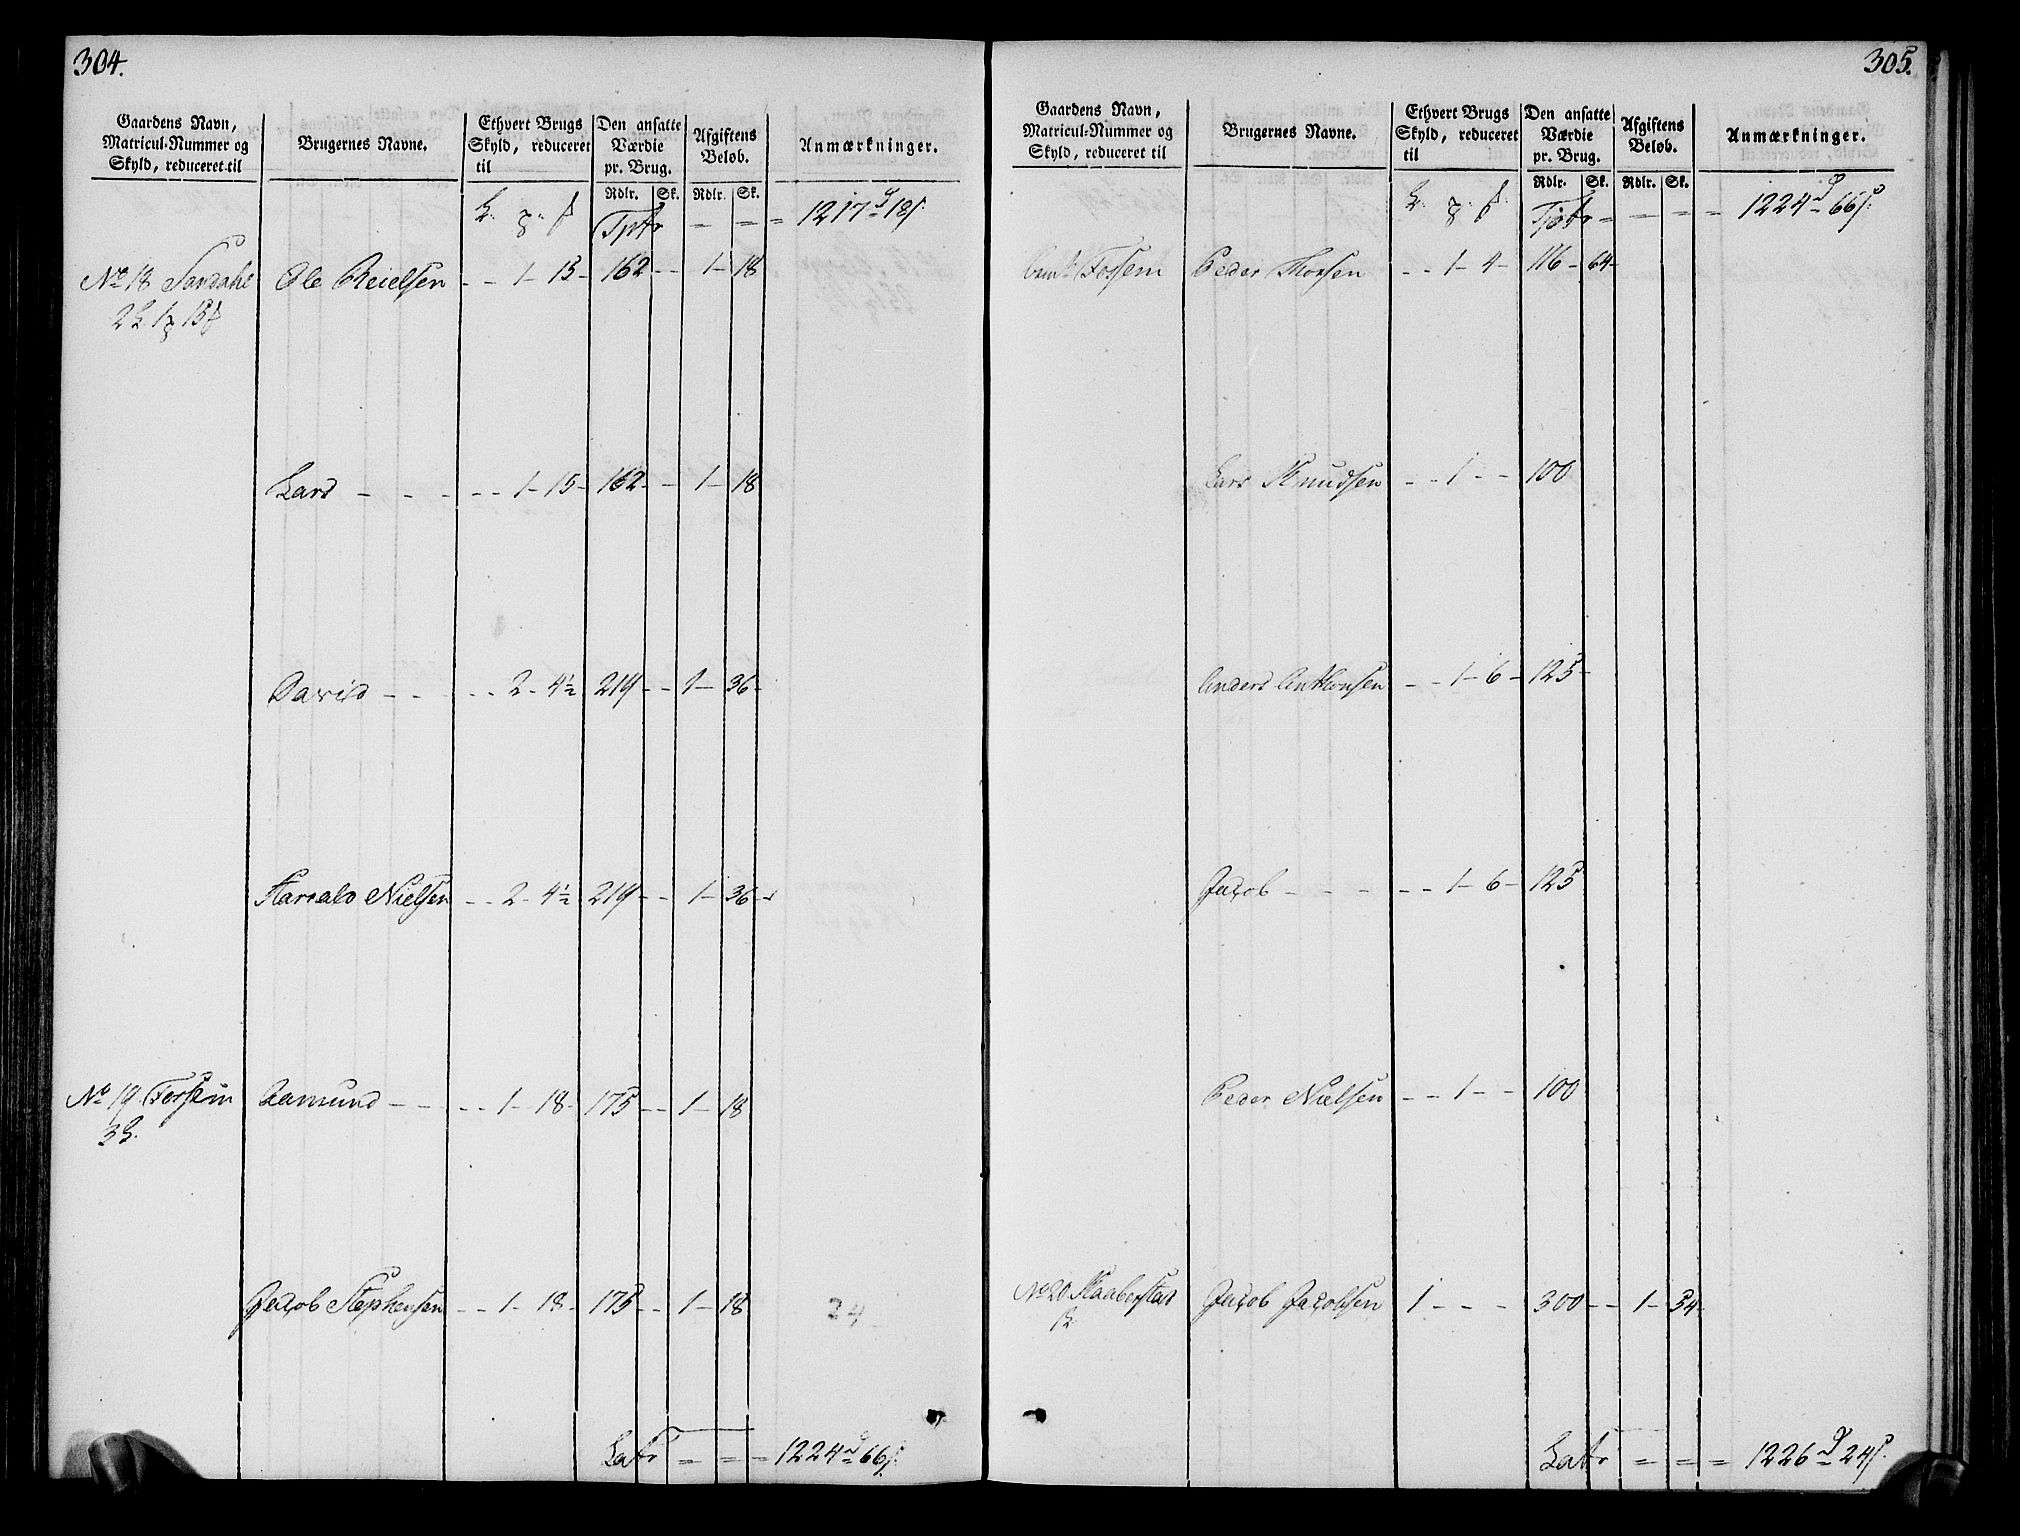 304.
Gaardens Navn, Matricul-Nummer og Skyld, reduceret til
Brugernes Navne.
Ethvert Brugs Skyld, reduceret til
Den ansatte Værdie pr. Brug.
Afgiftens Beløb.
Anmærkninger.
Rdlr. Sk. Rdlr. Sk.
Tptr = = = 1217 18
No 18 Sandahl Ole Reielsen - - 1 - 15 - 162 - - 1 - 18
Lars - - - - - 1 - 15 - 162 - - 1 - 18
David - - - - - 2 - 4½ 219 - - 1 - 36 -
Harrald Nielsen - - 2 - 4½ 219 - - 1 - 36 -
No 19 Fossem Aamund - - - - 1 - 18 - 175 - - 1 - 18
3
Jacob Stephensen - - 1 - 18 - 175 - - 1 - 18
24
Latr = = = 1224 66
305.
Gaardens Navn, Matricul-Nummer og Skyld, reduceret til
Brugernes Navne.
Ethvert Brugs Skyld, reduceret til
Den ansatte Værdie pr. Brug.
Afgiftens Beløb.
Anmærkninger.
Rdlr. Sk. Rdlr. Sk.
Tptr = = = = 1224 66
Fossem Peder Thorsen - - 1 - 4 - 116 - 64 -
Lars Knudsen - - 1 - - 100
Anders Anthonsen - - 1 - 6 - 125 -
Jacob - - - - - - 1 - 6 - 125
Peder Nielsen - - 1 - - 100
No 20 Skaaberstad Jacob Jacobsen 1 - - - 300 - - 1 - 54 -
Latr = = = 1226 24